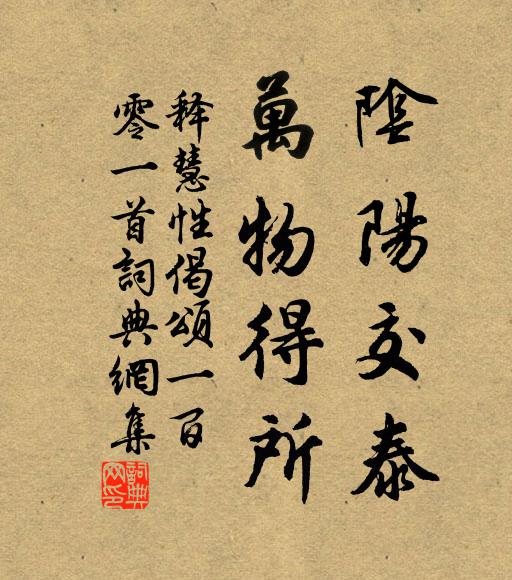 陰陽交泰
萬物得所
释慧性偈頌一百
零一首詞典網集
詞典网印